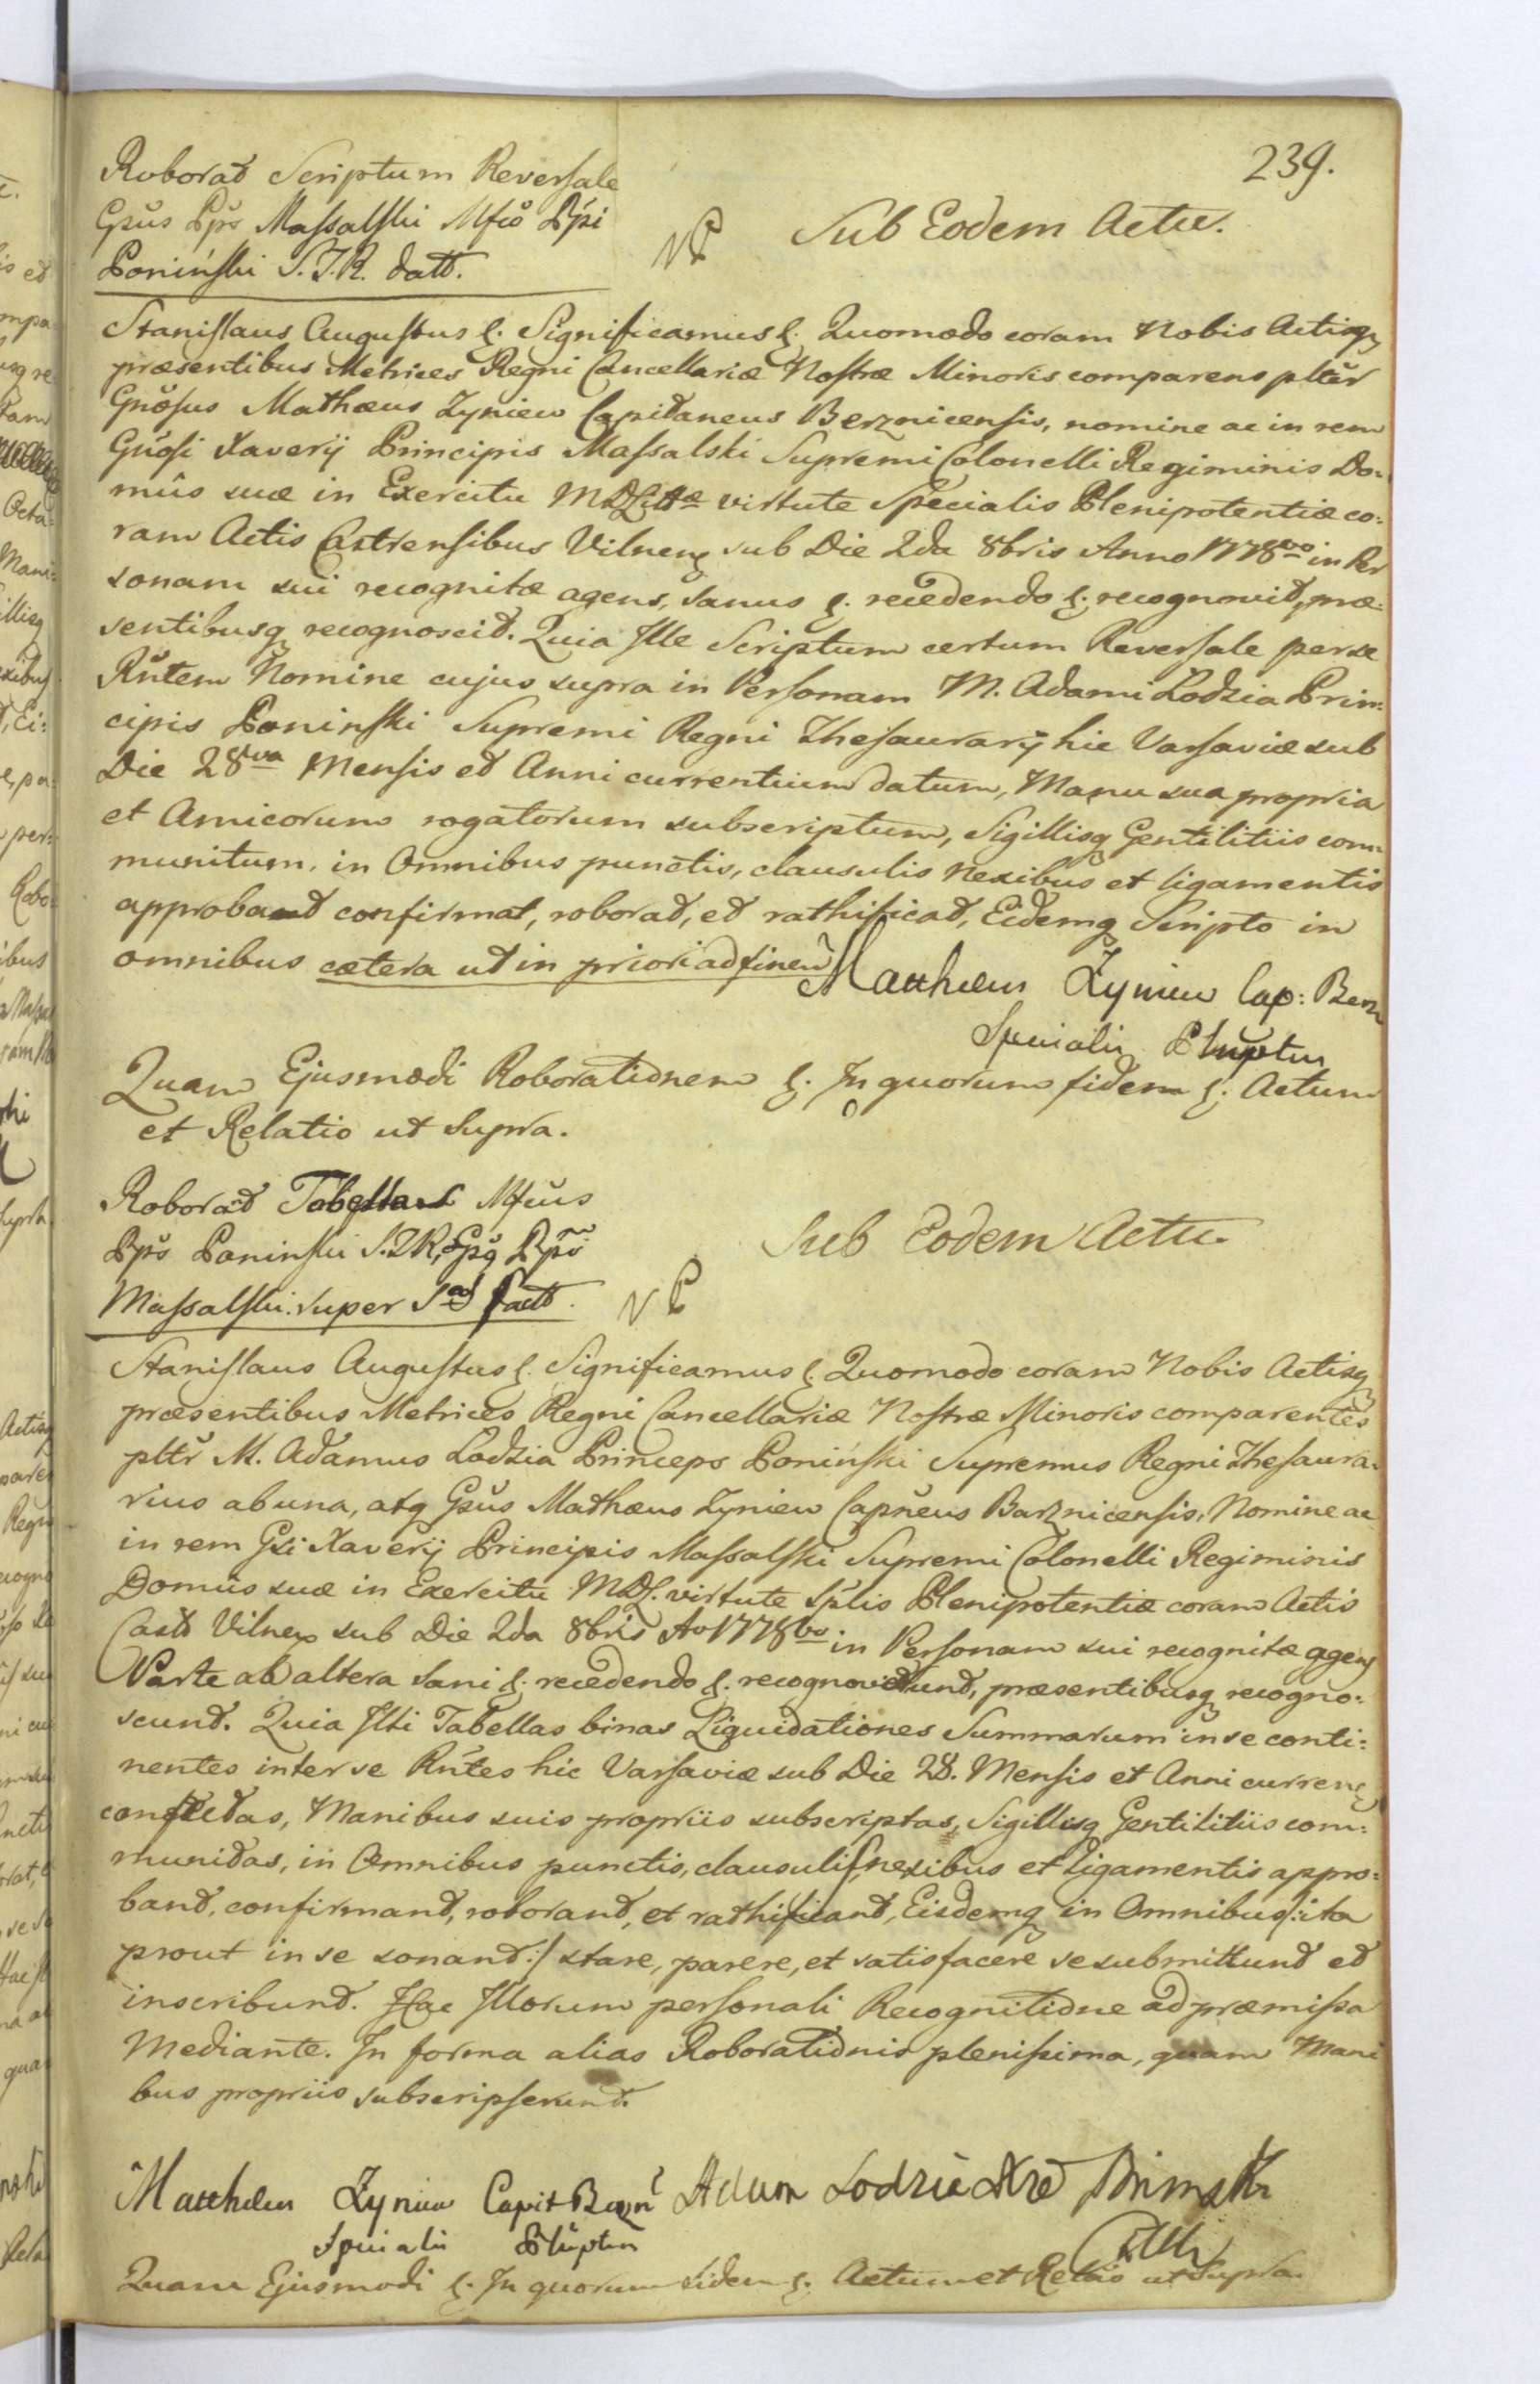 239.
Roborat Scriptum Reversale
Gsus Pps Massalski Mfco Ppi
Poniński S.T.R. datt.
NP
Sub Eodem Actu.
Stanislaus Augustus &. Significamus &. Quomodo coram Nobis Actisq
præsentibus Metrices Regni Cancellariæ Nostræ Minoris comparens plter
Gnosus Mathæus Zyniew Capitaneus Berznicensis, nomine ac in rem
Gnosi Xaverij Principis Massalski Supremi Colonelli Regiminis Do:
mûs suæ in Exercitu MDLittæ virtute Specialis Plenipotentiæ co:
ram Actis Castrensibus Vilnen sub Die 2da 8bris Anno 1778vo in Per
sonam sui recognitæ agens, sanus &. recedendo &. recognovit, præ:
sentibusq recognoscit. Quia Ille Scriptum certum Reversale per se
Rntem Nomine cujus supra in Personam M. Adami Lodzia Prin:
cipis Poninski Supremi Regni Thesaurarij hic Varsaviæ sub
Die 28va Mensis et Anni currentium datum, Manu sua propria
et Amicorum rogatorum subscriptum, Sigillisq Gentilitiis com:
munitum, in Omnibus punctis, clausulis nexibus et ligamentis
approbat confirmat, roborat, et rathificat, Eidemq Scripto in
omnibus cætera ut in priori ad finem
Matthæus Zyniew Cap: Berzn
Specialis Plnptus
Quam Ejusmodi Roborationem &. In quorum fidem &. Actum
et Relatio ut supra.
Roborat Tabellas Mfcus
Pps Poninski S.T.R, Gsq Pps
Massalski super Sas fact.
NP
Sub Eodem Actu
Stanislaus Augustus &. Significamus &. Quomodo coram Nobis Actisq
præsentibus Metrices Regni Cancellariæ Nostræ Minoris comparentes
pltr M. Adamus Lodzia Princeps Poniński Supremus Regni Thesaura:
rius ab una, atq Gsus Mathæus Zyniew Capneus Barznicensis, Nomine ac
in rem Gsi Xaverij Principis Massalski Supremi Colonelli Regiminis
Domûs suæ in Exercitu MDL. virtute Splis Plenipotentiæ coram Actis
Cast Vilnen sub Die 2da 8bris Ao 1778vo in Personam sui recognitæ agens
Parte ab altera sani &. recedendo &. recognoverunt, præsentibusq recogno:
scunt. Quia Illi Tabellas binas Liquidationes Summarum in se conti:
nentes inter se Rntes hic Varsaviæ sub Die 28. Mensis et Anni curren
confectas, Manibus suis propriis subscriptas, Sigillisq Gentilitiis com:
munitas, in Omnibus punctis, clausulis, nexibus et ligamentis appro:
bant, confirmant, roborant, et rathificant, Eisdemq in Omnibus /:ita
prout in se sonant:/ stare, parere, et satisfacere se submittunt et
inscribunt. Hac Illorum personali Recognitione ad præmissa
Mediante. In forma alias Roborationis plenissima, quam Mani
bus propriis subscripserunt.
Matthæus Zyniew Capit Berzn Adam Lodzia
Specialis Plnptus
Quam Ejusmodi &. In quorum fidem &. Actum et Relatio ut supra.